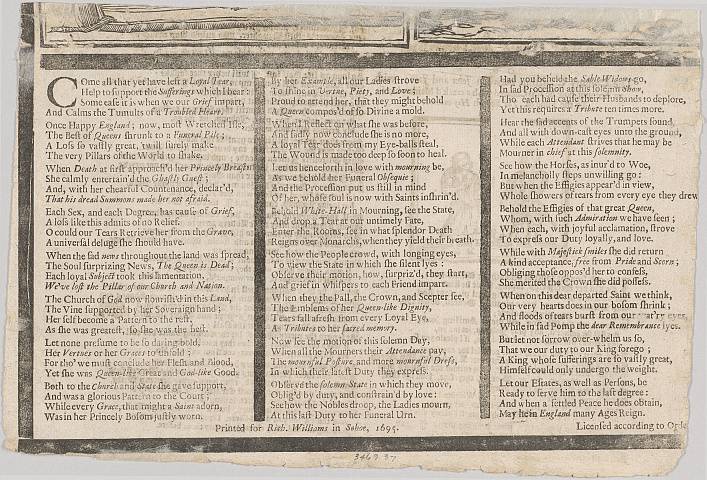 COme all that yet have left a Loyal Tear,
Help to support the Sufferings which I bear:
Some ease it is when we our Grief impart,
And Calms the Tumults of a Troubled Heart.
Once Happy England; now, most Wretched Isle,
The Best of Queens shrunk to a Funeral Pile;
A Loss so vastly great, 'twill surely make
The very Pillars of the World to shake.
When Death at first approach'd her Princely Breast
She calmly entertain'd the Ghastly Guest;
And, with her chearful Countenance, declar'd,
That his dread Summons made her not afraid.
Each Sex, and each Degree, has cause of Grief,
A loss like this admits of no Relief.
O could our Tears Retrieve her from the Grave,
A universal deluge she should have.
When the sad news throughout the land was spread,
The Soul surprizing News, The Queen is Dead;
Each loyal Subject took this lamentation,
We've lost the Pillar of our Church and Nation.
The Church of God now flourish'd in this Land,
The Vine supported by her Soveraign hand;
Her self become a Pattern to the rest,
As she was greatest, so she was the best.
Let none presume to be so daring bold,
Her Vertues or her Graces to unfold:
For tho' we must conclude her Flesh and Blood,
Yet she was Queen-like Great and God-like Good.
Both to the Church and State she gave support,
And was a glorious Pattern to the Court;
While every Grace, that might a Saint adorn,
Was in her Princely Bosom justly worn.
By her Example, all our Ladies strove
To shine in Vertue, Piety, and Love;
Proud to attend her, that they might behold
A Queen compos'd of so Divine a mold.
When I reflect on what she was before,
And sadly now conclude she is no more,
A loyal Tear does from my Eye-balls steal,
The Wound is made too deep so soon to heal.
Let us henceforth in love with mourning be,
As we behold her Funeral Obsequie;
And the Procession put us still in mind
Of her, whose soul is now with Saints inshrin'd.
Behold White-Hall in Mourning, see the State,
And drop a Tear at our untimely Fate,
Enter the Rooms, see in what splendor Death
Reigns over Monarchs, when they yield their breath.
See how the People crowd, with longing eyes,
To view the State in which she silent lyes:
Observe their motion, how, surpriz'd, they start,
And grief in whispers to each Friend impart.
When they the Pall, the Crown, and Scepter see,
The Emblems of her Queen-like Dignity,
Tears fall afresh from every Loyal Eye,
As Tributes to her sacred memory.
Now see the motion of this solemn Day,
When all the Mourners their Attendance pay,
The mournful Posture, and more mournful Dress,
In which their latest Duty they express.
Observe the solemn State in which they move,
Oblig'd by duty, and constrain'd by love:
See how the Nobles droop, the Ladies mourn,
At this last Duty to her Funeral Urn.
Had you beheld the Sable Widows go,
In sad Procession at this solemn Show,
Tho each had cause their Husbands to deplore,
Yet this requires a Tribute ten times more.
Hear the sad accents of the Trumpets sound,
And all with down-cast eyes unto the ground,
While each Attendant strives that he may be
Mourner in chief at this solemnity.
See how the Horses, as inur'd to Woe,
In melancholly steps unwilling go:
But when the Effigies appear'd in view,
Whole showers of tears from every eye they drew
Behold the Effigies of that great Queen,
Whom, with such Admiration we have seen;
When each, with joyful acclamation, strove
To express our Duty loyally, and love.
While with Majestick smiles she did return
A kind acceptance, free from Pride and Scorn;
Obliging those oppos'd her to confess,
She merited the Crown she did possess.
When on this dear departed Saint we think,
Our very hearts does in our bosom shrink;
And floods of tears burst from our lyes.
While in sad Pomp the dear Remembrance
But let not sorrow over-whelm us so,
That we our duty to our King forego;
A King whose sufferings are so vastly great,
Himself could only undergo the weight.
Let our Estates, as well as Persons, be
Ready to serve him to the last degree:
And when a settled Peace he does obtain,
May he in England many Ages Reign.
Printed for Rich. Williams in Sohoe, 1695.
Licensed according to